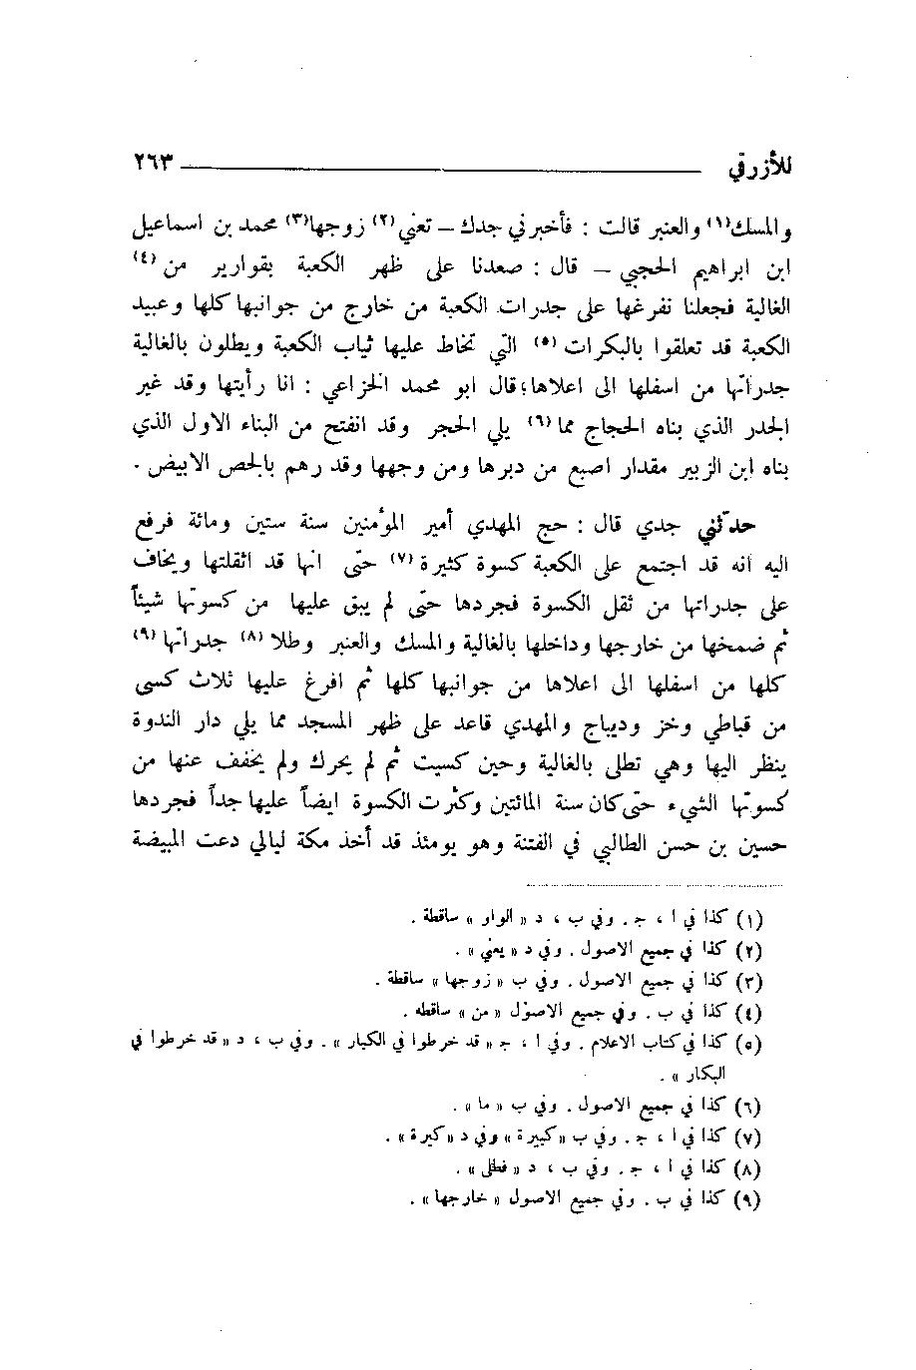 للأزرقي ٢٦٣
والمسك(١) والعنبر قالت : فأخبرني جدك ــ تعني (٢) زوجها(٣) محمد بن اسماعيل
ابن ابراهيم الحجبي ــ قال : صعدنا على ظهر الكعبة بقوارير من (٤)
الغالية فجعلنا نفرغها على جدرات الكعبة من خارج من جوانبها كلها وعبيد
الكعبة قد تعلقوا بالبكرات (٥) التي تخاط عليها ثياب الكعبة ويطلون بالغالية
جدراتها من اسفلها الى اعلاها؛قال ابو محمد الخزاعي : انا رأيتها وقد غير
الجدر الذي بناه الحجاج مما (٦) يلي الحجر وقد انفتح من البناء الاول الذي
بناه ابن الزبير مقدار اصبع من دبرها ومن وجهها وقد رهم بالجص الابيض .
حدثني جدي قال : حج المهدي أمير المؤمنين سنة ستين ومائة فرفع
اليه انه قد اجتمع على الكعبة كسوة كثيرة (٧) حتى انها قد اثقلتها ويخاف
على جدراتها من ثقل الكسوة فجردها حتى لم يبق عليها من كسوتها شيئاً
ثم ضمخها من خارجها وداخلها بالغالية والمسك والعنبر وطلا (٨) جدراتها (٩)
كلها من اسفلها الى اعلاها من جوانبها كلها ثم افرغ عليها ثلاث كسى
من قباطي وخز وديباج والمهدي قاعد على ظهر المسجد مما يلي دار الندوة
ينظر اليها وهي تطلى بالغالية وحين كسيت ثم لم يحرك ولم يخفف عنها من
كسوتها الشيء حتى كان سنة المائتين وكثرت الكسوة ايضاً عليها جداً فجردها
حسين بن حسن الطالبي في الفتنة وهو يومئذ قد أخذ مكة ليالي دعت المبيضة
(١) كذا في ا ، ج . وفي ب ، د « الواو » ساقطة .
(٢) كذا في جميع الاصول . وفي د « يعني » .
(٣) كذا في جميع الاصول . وفي ب « زوجها » ساقطة .
(٤) كذا في ب . وفي جميع الاصول « من » ساقطه .
(٥) كذا في كتاب الاعلام . وفي ا ، ج « قد خرطوا في الكبار » . وفي ب ، د « قد خرطوا في
البكار » .
(٦) كذا في جميع الاصول . وفي ب « ما » .
(٧) كذا في ا ، ج . وفي ب « كبيرة » وفي د « كبرة » .
(٨) كذا في ا ، ج . وفي ب ، د « فطلى » .
(٩) كذا في ب . وفي جميع الاصول « خارجها » .